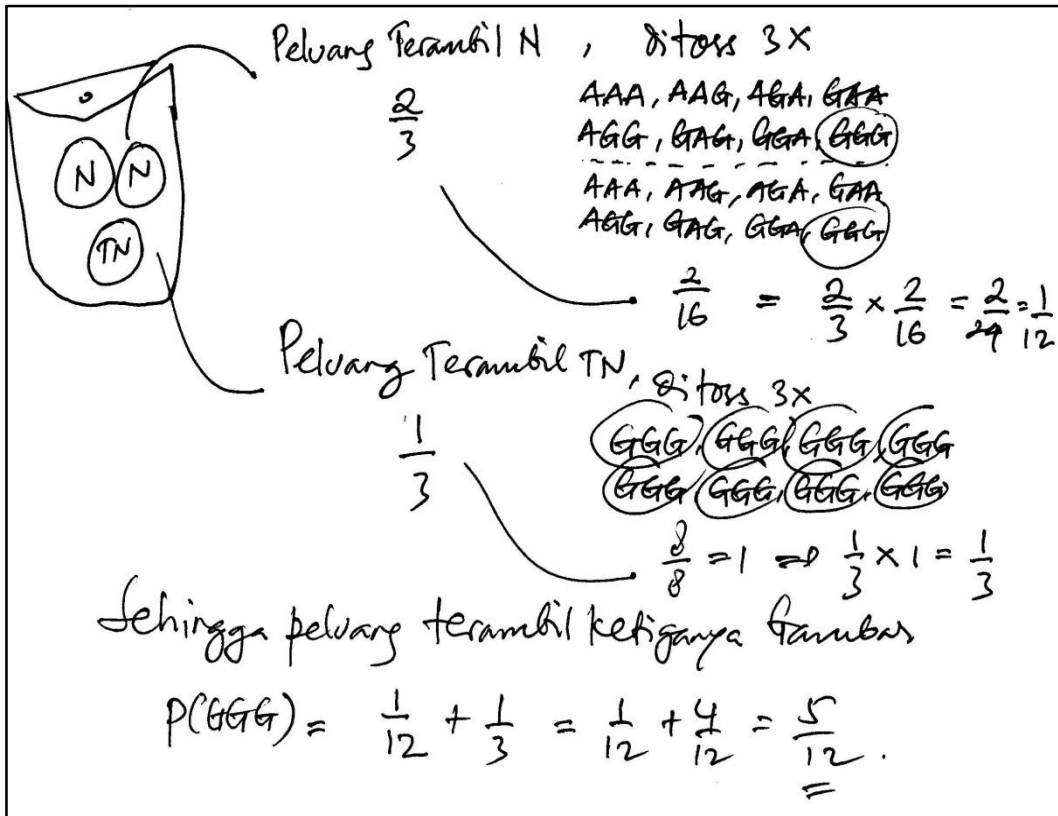 Peluang Terambil N , ditoss 3X
2/3
AAA, AAG, AGA, GAA
AGG, GAG, GGA, GGG
AAA, AAG, AGA, GAA
AGG, GAG, GGA, GGG
N N
TN
2/16 = 2/3 × 2/16 = 2/24 = 1/12
Peluang Terambil TN, ditoss 3X
1/3
GGG, GGG, GGG, GGG
GGG, GGG, GGG, GGG
8/8 = 1 ⇒ 1/3 × 1 = 1/3
Sehingga peluang terambil ketiganya Gambar
P(GGG) = 1/12 + 1/3 = 1/12 + 4/12 = 5/12 .